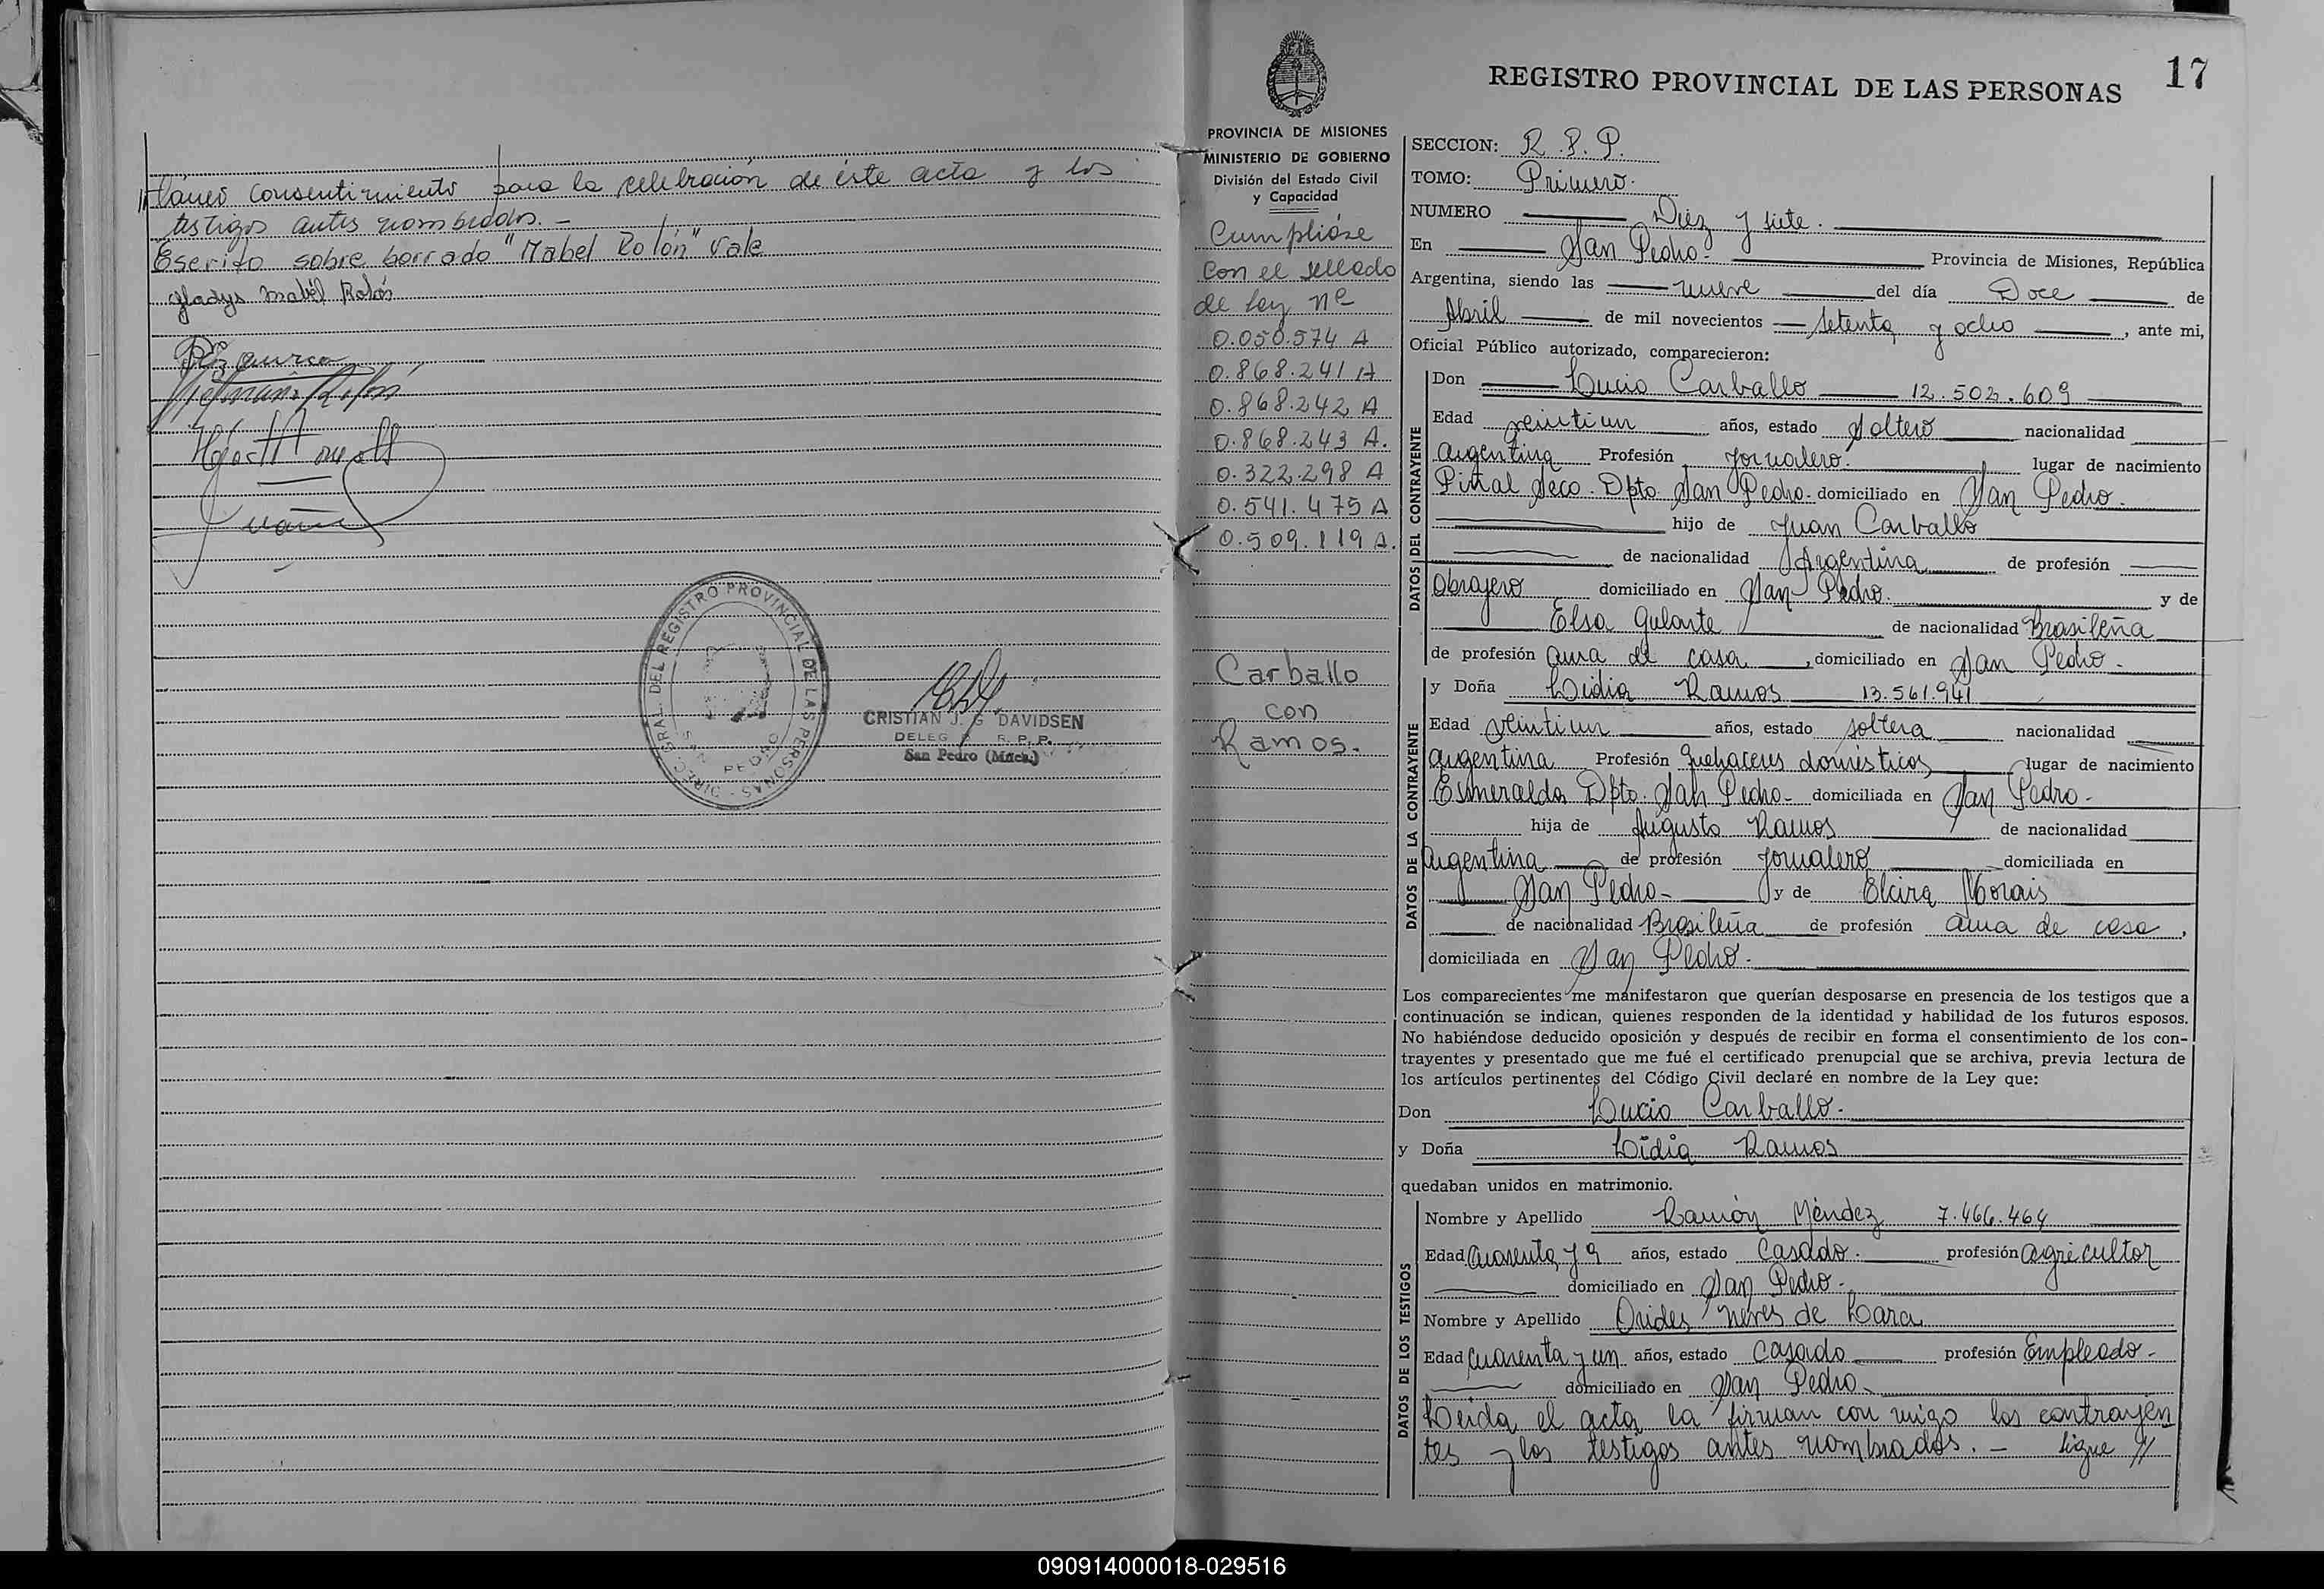 consentimiento para la celebración de éste acta y los
testigos antes nombrados.-
Escrito sobre borrado "Mabel Rolón" vale
Gladys Mabel Rolón
DIREC. GRAL. DEL REGISTRO PROVINCIAL DE LAS PERSONAS
SAN PEDRO
CRISTIAN J. G DAVIDSEN
DELEG R. P. P.
San Pedro (Mnes.)
PROVINCIA DE MISIONES
MINISTERIO DE GOBIERNO
División del Estado Civil
y Capacidad
Cumplióse
con el sellado
de Ley nº
0.050.574 A
0.868.241 A
0.868.242 A
0.868.243 A.
0.322.298 A
0.541.475 A
0.509.119 A.
Carballo
con
Ramos.
REGISTRO PROVINCIAL DE LAS PERSONAS 17
SECCION: R.P.P.
TOMO: Primero.
NUMERO Diez y siete.
En San Pedro- Provincia de Misiones, República
Argentina, siendo las nueve del día Doce de
Abril de mil novecientos setenta y ocho, ante mi,
Oficial Público autorizado, comparecieron:
DATOS DEL CONTRAYENTE
Don Lucio Carballo 12.502.609
Edad veintiun años, estado soltero nacionalidad
argentina Profesión jornalero. lugar de nacimiento
Piñal Seco. Dpto. San Pedro- domiciliado en San Pedro.
hijo de Juan Carballo
de nacionalidad Argentina de profesión
Obrajero domiciliado en San Pedro. y de
Elsa Gularte de nacionalidad Brasileña
de profesión ama de casa, domiciliado en San Pedro-
DATOS DE LA CONTRAYENTE
y Doña Lidia Ramos 13.561.941
Edad veintiun años, estado soltera nacionalidad
argentina Profesión quehaceres domésticos lugar de nacimiento
Esmeralda Dpto. San Pedro- domiciliada en San Pedro-
hija de Augusto Ramos de nacionalidad
argentina de profesión jornalero domiciliada en
San Pedro- y de Elcira Morais
de nacionalidad Brasileña de profesión ama de casa,
domiciliada en San Pedro-
Los comparecientes me manifestaron que querían desposarse en presencia de los testigos que a
continuación se indican, quienes responden de la identidad y habilidad de los futuros esposos.
No habiéndose deducido oposición y después de recibir en forma el consentimiento de los con-
trayentes y presentado que me fué el certificado prenupcial que se archiva, previa lectura de
los artículos pertinentes del Código Civil declaré en nombre de la Ley que:
Don Lucio Carballo-
y Doña Lidia Ramos
quedaban unidos en matrimonio.
DATOS DE LOS TESTIGOS
Nombre y Apellido Ramón Méndez 7.466.464
Edad cuarenta y 9 años, estado casado- profesión agricultor
domiciliado en San Pedro-
Nombre y Apellido Orides Neres de Lara
Edad cuarenta y un años, estado casado profesión Empleado-
domiciliado en San Pedro-
Leida el acta la firman con migo los contrayen
tes y los testigos antes nombrados. - sigue //
090914000018-029516